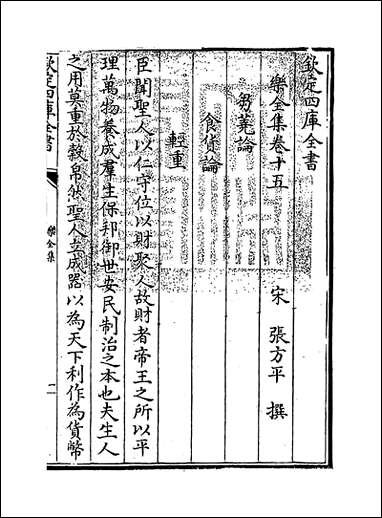 欽定四庫全書
樂全集卷十五
宋 張方平 撰
芻蕘論
食貨論
輕重
臣聞聖人以仁守位以財聚人故財者帝王之所以平
理萬物養成羣生保邦御世安民制治之本也夫生人
之用莫重於穀帛然聖人立成器以為天下利作為貨幣
欽定四庫全書
樂全集